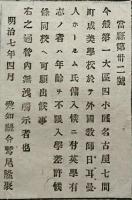 當縣第卄二號
今般第一大區四小區名古屋七間
町成美學校於テ外國敎師日耳曼
人ホールム氏傭入候ニ付英學有
志ノ者ハ年齡ヲ不限入學差許候
條同校ヘ可願出候事
右之通管內無洩相示者也
明治七年四月　愛知縣令鷲尾隆聚